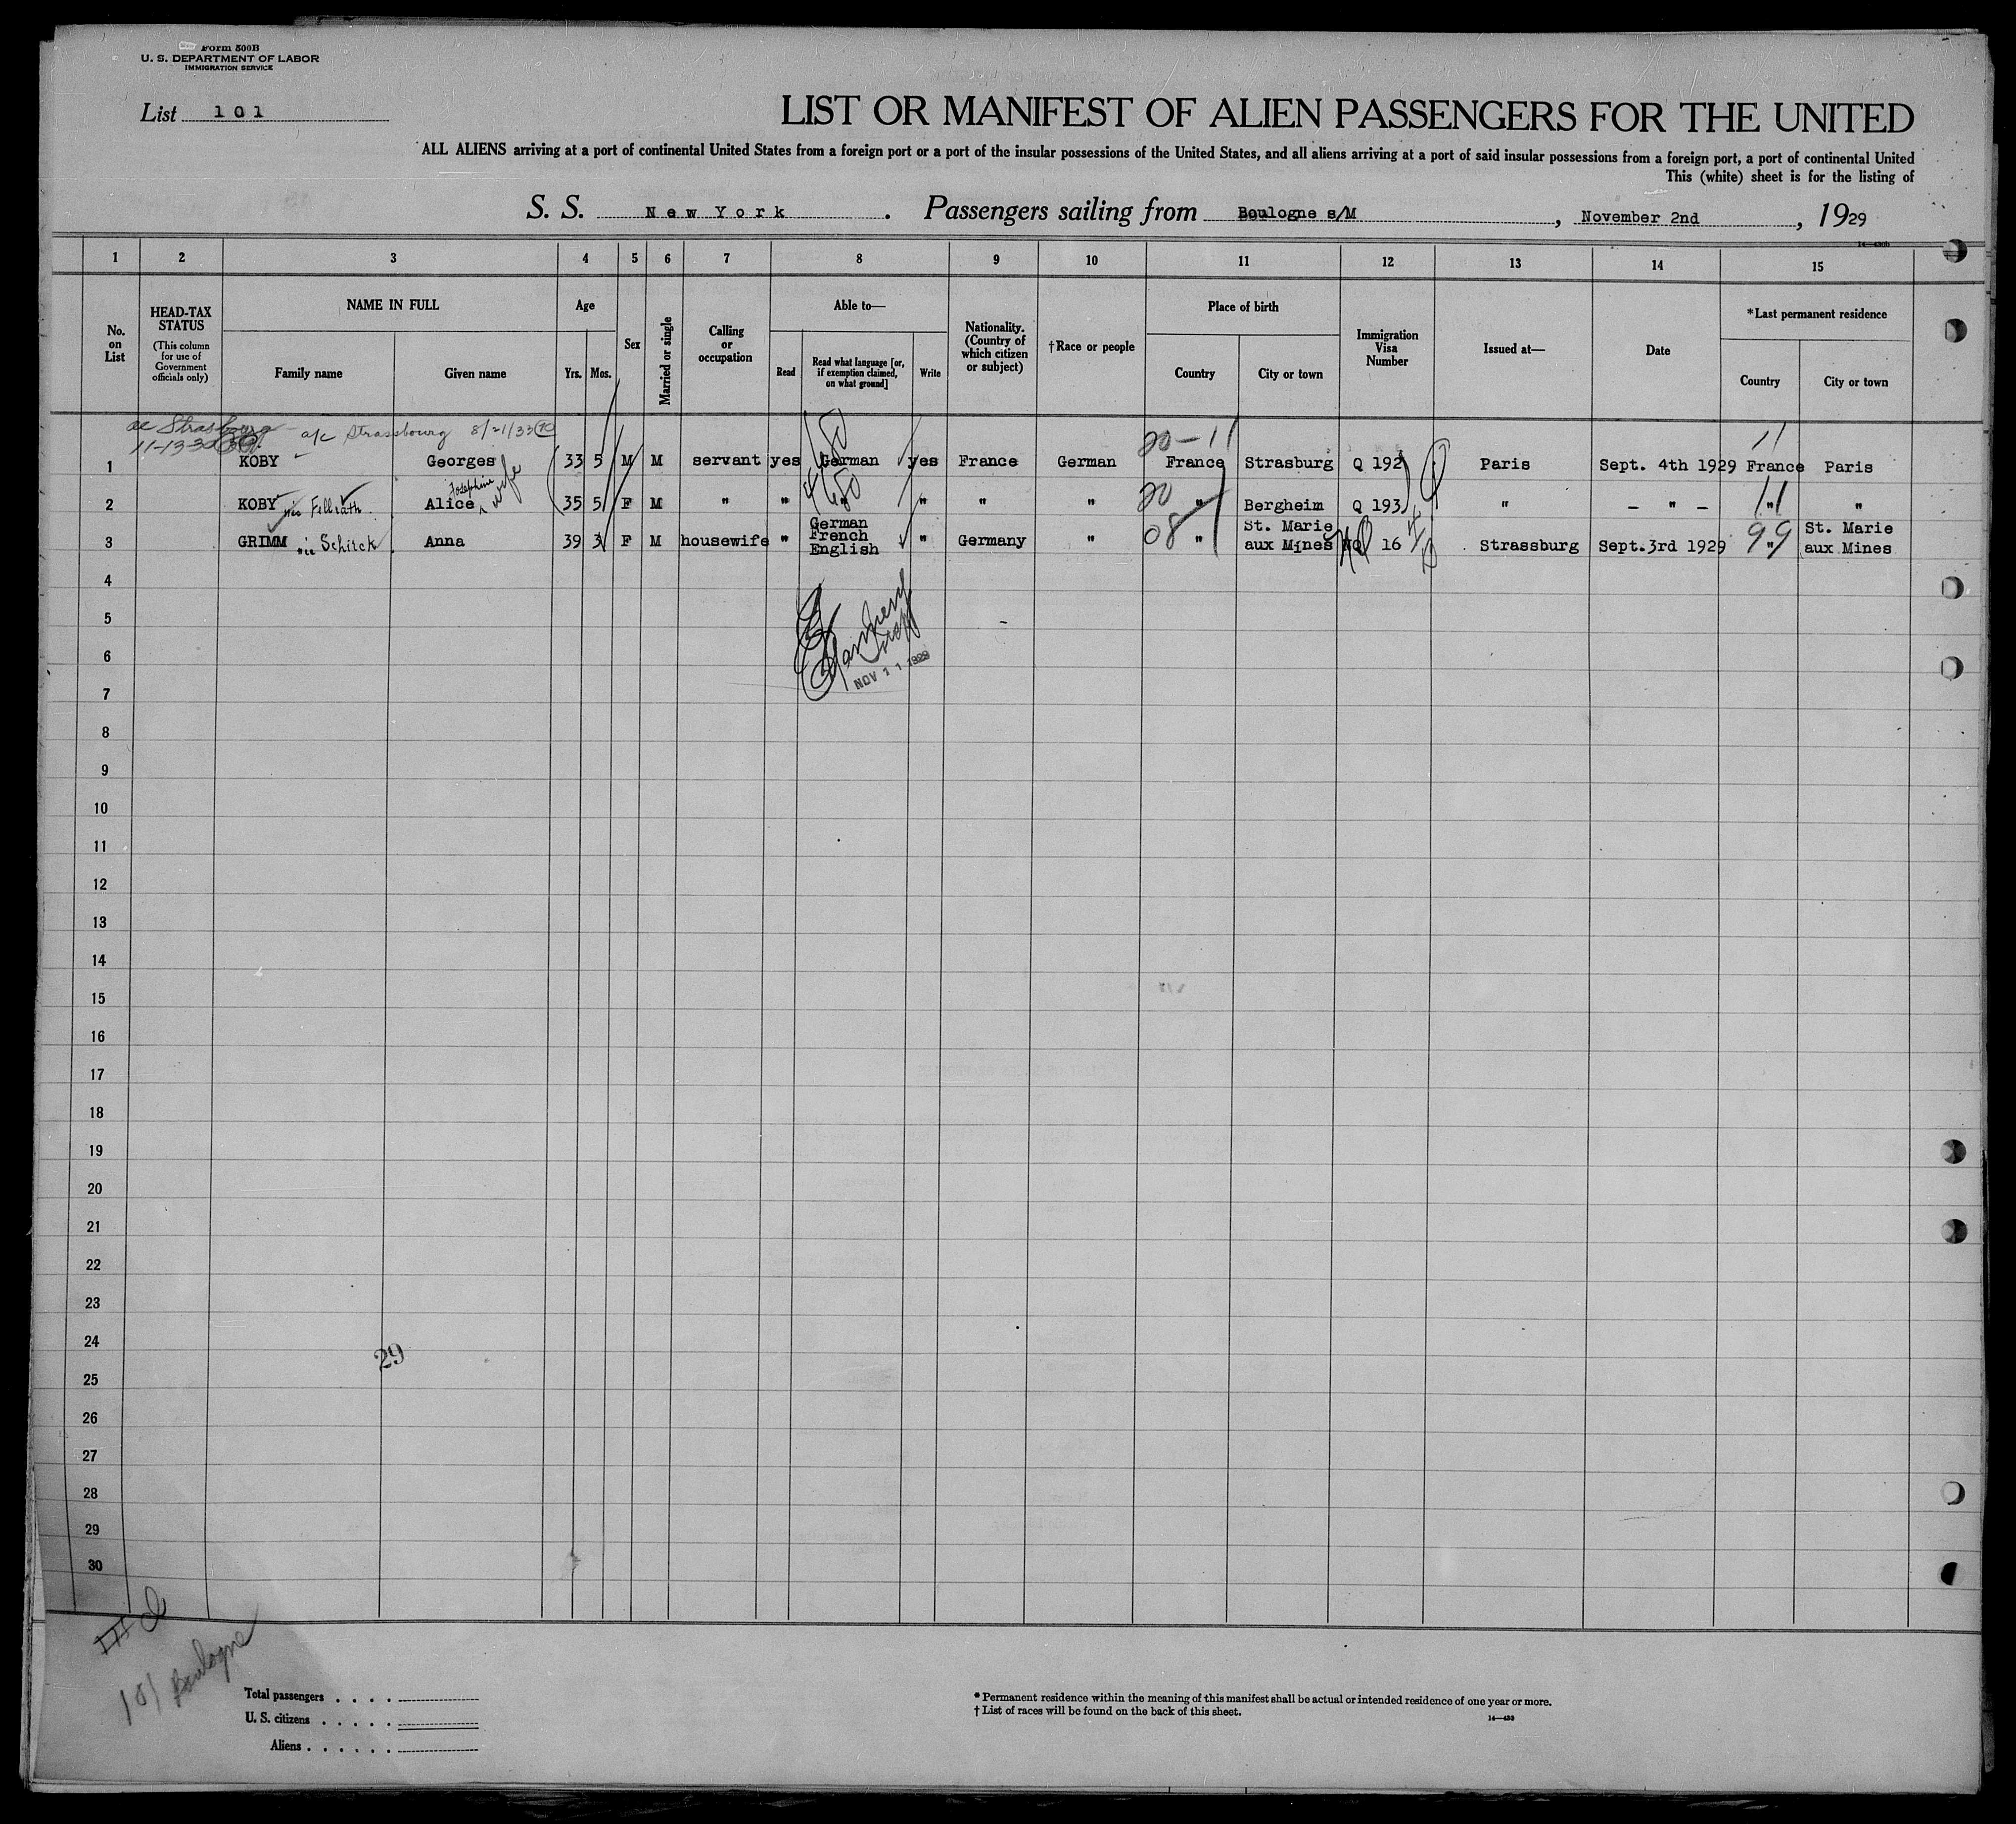 Form 500B
U. S. DEPARTMENT OF LABOR
IMMIGRATION SERVICE
List 101
LIST OR MANIFEST OF ALIEN PASSENGERS FOR THE UNITED
ALL ALIENS arriving at a port of continental United States from a foreign port or a port of the insular possessions of the United States, and all aliens arriving at a port of said insular possessions from a foreign port, a port of continental United
This (white) sheet is for the listing of
S. S. New York. Passengers sailing from Boulogne s/M, November 2nd, 1929
14—430b
1 2 3 4 5 6 7 8 9 10 11 12 13 14 15
No. on List
HEAD-TAX STATUS
(This column for use of Government officials only)
NAME IN FULL
Family name
Given name
Age
Yrs. Mos.
Sex
Married or single
Calling or occupation
Able to—
Read
Read what language [or, if exemption claimed, on what ground]
Write
Nationality. (Country of which citizen or subject)
†Race or people
Place of birth
Country
City or town
Immigration Visa Number
Issued at—
Date
*Last permanent residence
Country
City or town
a/c Strassbourg 8/21/33
1 KOBY Georges 33 5 M M servant yes German yes France German 20-11 France Strasburg Q 192 Paris Sept. 4th 1929 11 France Paris
2 KOBY née Fellrath Alice Josephine wife 35 5 F M " " " " " " 20 " Bergheim Q 193 " – " – 11 " "
3 GRIMM née Schirck Anna 39 3 F M housewife " German French English " Germany " 08 " St. Marie aux Mines NQ 16 Strassburg Sept.3rd 1929 99 " St. Marie aux Mines
4
5
6
NOV 11 1929
7
8
9
10
11
12
13
14
15
16
17
18
19
20
21
22
23
24
29
25
26
27
28
29
30
101 Boulogne
Total passengers . . . .
U. S. citizens . . . . .
Aliens . . . . . .
* Permanent residence within the meaning of this manifest shall be actual or intended residence of one year or more.
† List of races will be found on the back of this sheet.
14—430